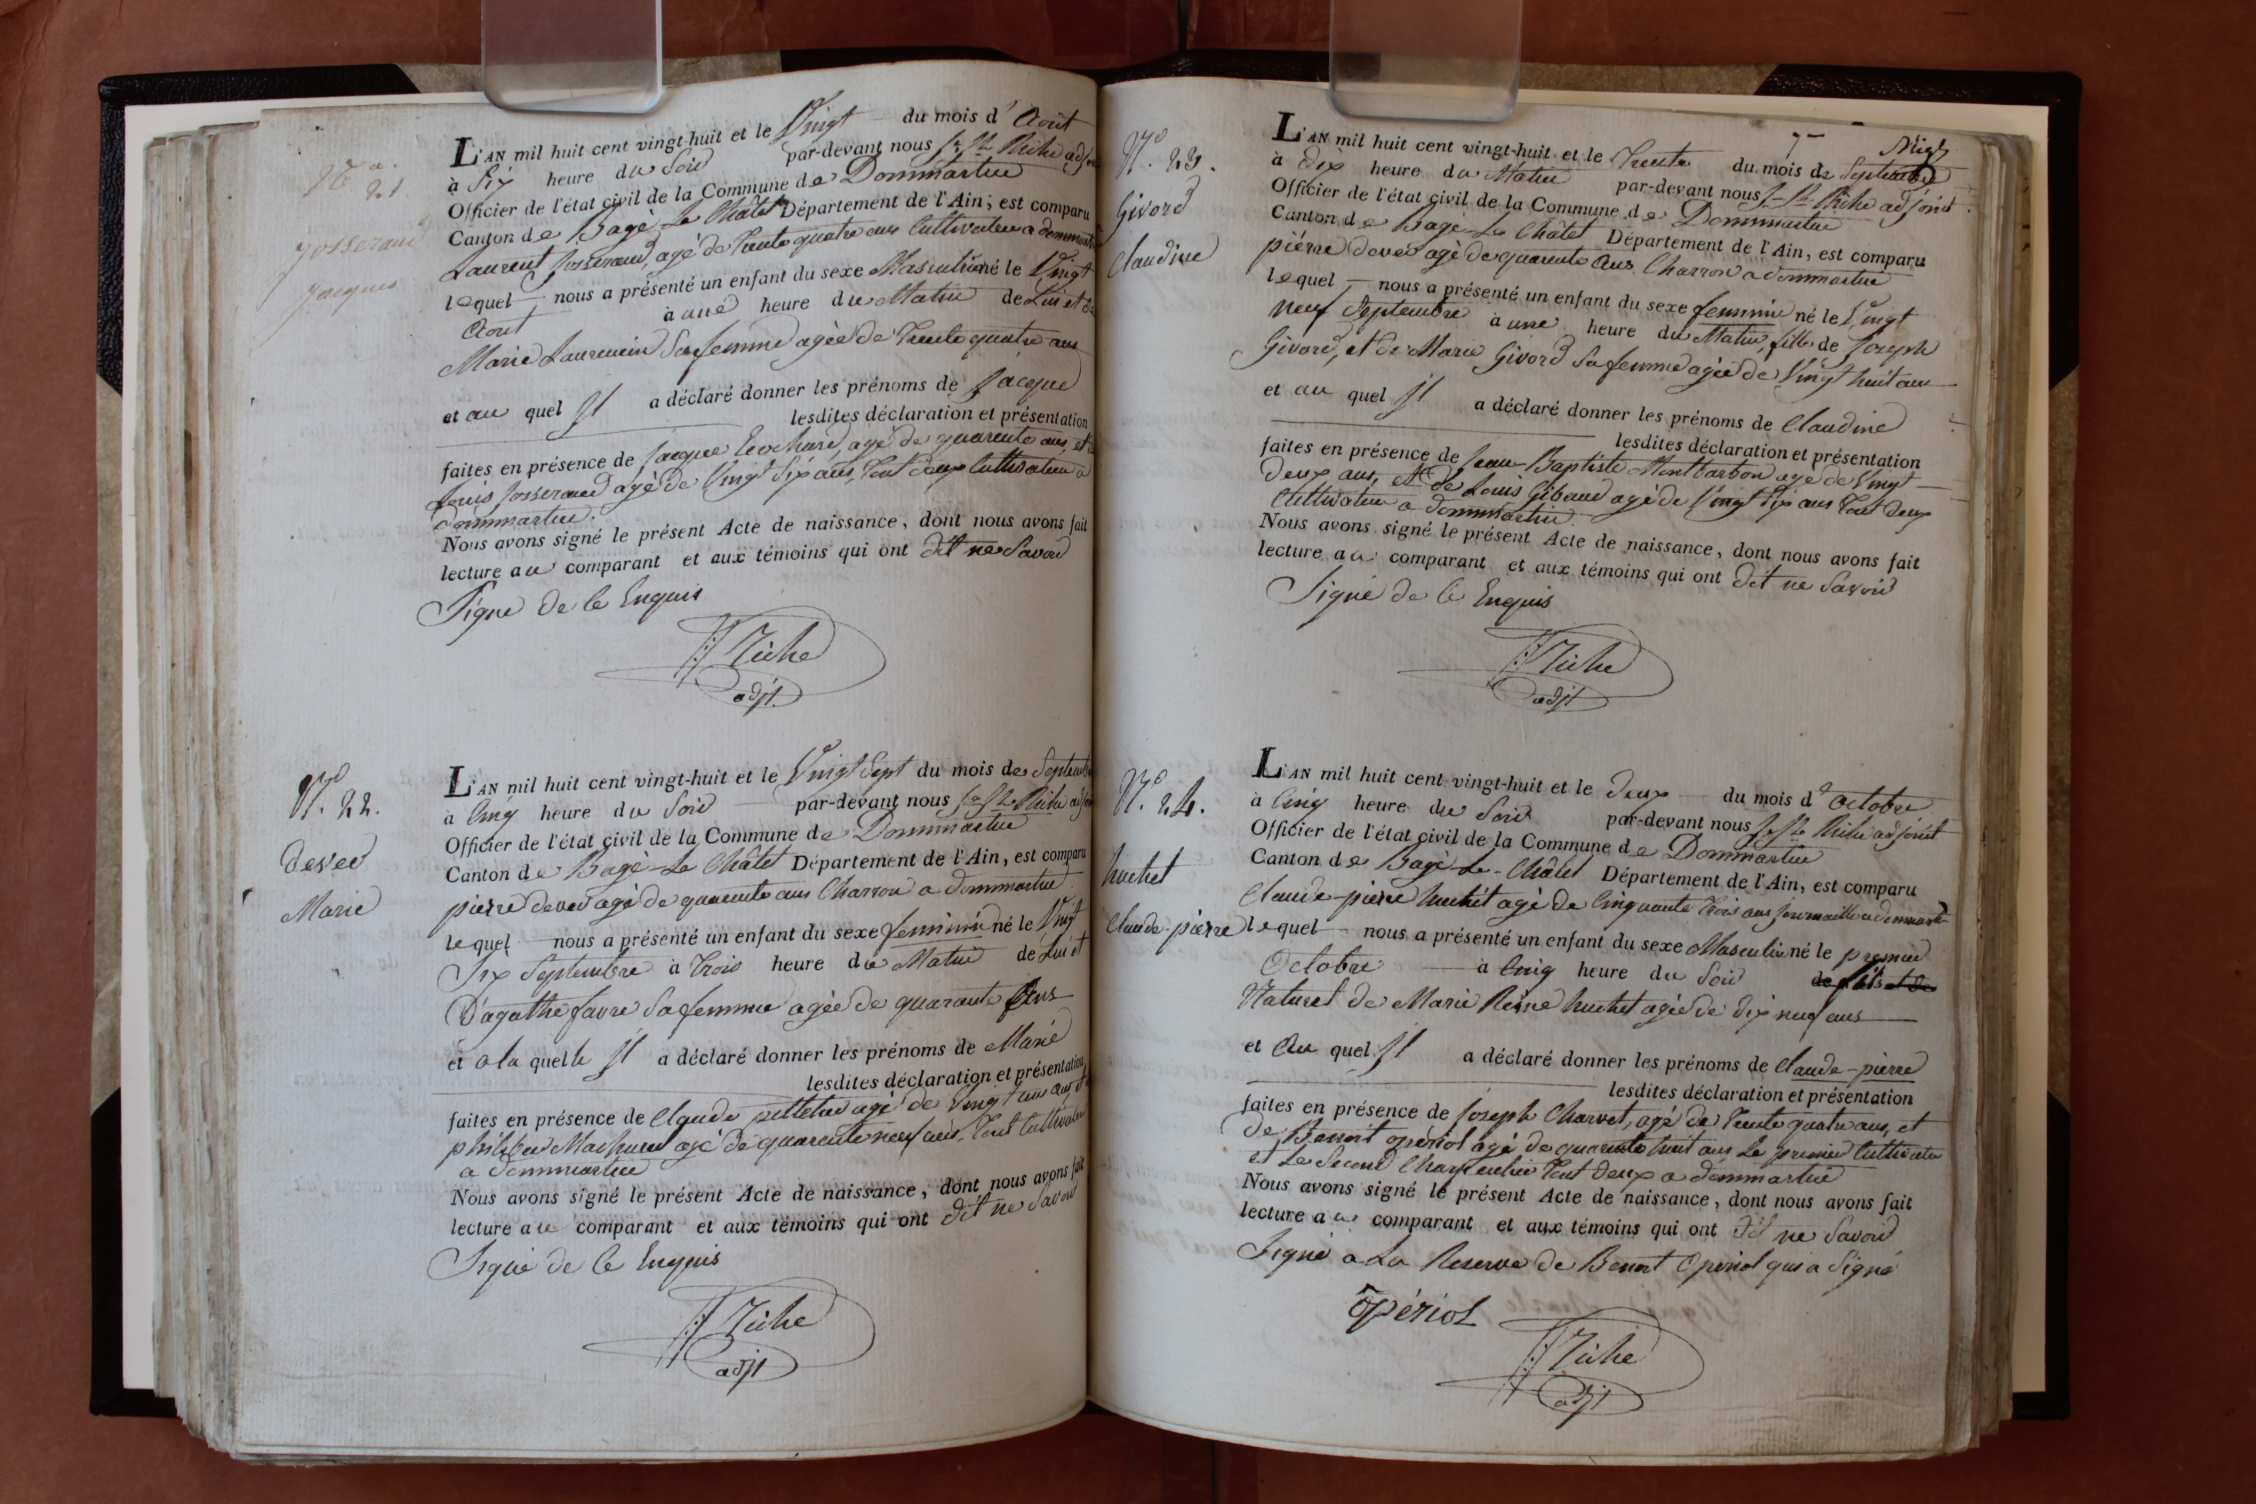 N.o 21
Josserand
Jacques
L'AN mil huit cent vingt-huit et le Vingt du mois d'Août
à Six heure du Soir par-devant nous Riche adjoint
Officier de l'état civil de la Commune de Dommartin
Canton de Bagé-Le Châtel Département de l'Ain, est comparu
Laurent Josserand, agé de trente quatre ans Cultivateur a dommartin
lequel nous a présenté un enfant du sexe Masculin né le Vingt
Aout à une heure du Matin de Lui et de
Marie Laurencin Sa femme agée de trente quatre ans
et au quel Il a déclaré donner les prénoms de Jacque
lesdites déclaration et présentation
faites en présence de Jacque Brochard, agé de quarente ans, et
Louis Josserand agé de Vingt Six ans, tout deux Cultivateur a
dommartin.
Nous avons signé le présent Acte de naissance, dont nous avons fait
lecture au comparant et aux témoins qui ont dit ne Savoir
Signé de Ce Enquis
Riche
adjt.
N.o 22.
devev
Marie
L'AN mil huit cent vingt-huit et le Vingt Sept du mois de Septembre
à Cinq heure du Soir par-devant nous Riche adjoint
Officier de l'état civil de la Commune de Dommartin
Canton de Bagé-Le Châtel Département de l'Ain, est comparu
pierre devev agé de quarente ans Charron a dommartin
lequel nous a présenté un enfant du sexe feminin né le Vingt
Six Septembre à trois heure du Matin de Lui et
D'agathe favre Sa femme agée de quarante Ans
et a la quelle Il a déclaré donner les prénoms de Marie
lesdites déclaration et présentation
faites en présence de Claude pelletier agé de Vingt un ans, et
philiber Machurat agé de quarente neuf ans, tout Cultivateur
a dommartin
Nous avons signé le présent Acte de naissance, dont nous avons fait
lecture au comparant et aux témoins qui ont dit ne Savoir
Signé de Ce Enquis
Riche
adjt
N.o 23.
Givord
Claudine
L'AN mil huit cent vingt-huit et le trente du mois de Septembre
à dix heure du Matin par-devant nous Riche adjoint
Officier de l'état civil de la Commune de Dommartin
Canton de Bagé-Le Châtel Département de l'Ain, est comparu
pierre devev agé de quarente Ans Charron a dommartin
lequel nous a présenté un enfant du sexe feminin né le Vingt
neuf Septembre à une heure du Matin, fille de Joseph
Givord, et de Marie Givord Sa femme agée de Vingt huit ans
et au quel Il a déclaré donner les prénoms de Claudine
lesdites déclaration et présentation
faites en présence de Jean-Baptiste Montbarbon agé de Vingt
deux ans, et de Louis Gibaud agé de Vingt Six ans tout deux
Cultivateur a dommartin
Nous avons signé le présent Acte de naissance, dont nous avons fait
lecture au comparant et aux témoins qui ont dit ne Savoir
Signé de Ce Enquis
Riche
adjt
N.o 24.
huchet
Claude-pierre
L'AN mil huit cent vingt-huit et le deux du mois d'Octobre
à Cinq heure du Soir par-devant nous Riche adjoint
Officier de l'état civil de la Commune de Dommartin
Canton de Bagé-Le-Châtel Département de l'Ain, est comparu
Claude-pierre huchet agé de Cinquante trois ans Journaillier a dommartin
lequel nous a présenté un enfant du sexe Masculin né le premier
Octobre à Cinq heure du Soir fils
Naturel de Marie Reine huchet agée de dix neuf ans
et Au quel Il a déclaré donner les prénoms de Claude-pierre
lesdites déclaration et présentation
faites en présence de Joseph Charvet, agé de trente quatre ans, et
de Benoit opériol agé de quarante huit ans Le premier Cultivateur
et Le Second Charpentier tout deux a dommartin
Nous avons signé le présent Acte de naissance, dont nous avons fait
lecture au comparant et aux témoins qui ont dit ne Savoir
Signé a La Reserve de Benoit Opériol qui a Signé
opérioL
Riche
adjt